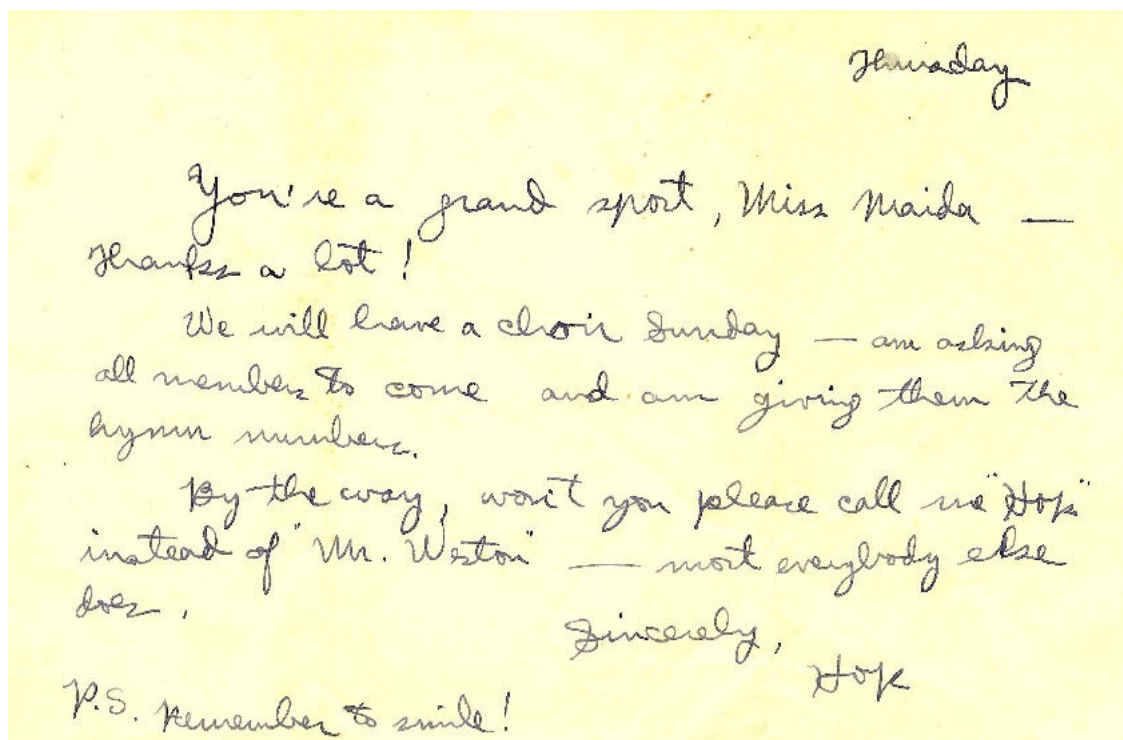 Thursday
You're a grand sport, Miss Maida —
Thanks a lot!
We will have a choir Sunday — am asking
all members to come and am giving them the
hymn numbers.
By the way, won't you please call me "Hop"
instead of "Mr. Weston" — most everybody else
does.
Sincerely,
Hop
P.S. Remember to smile!